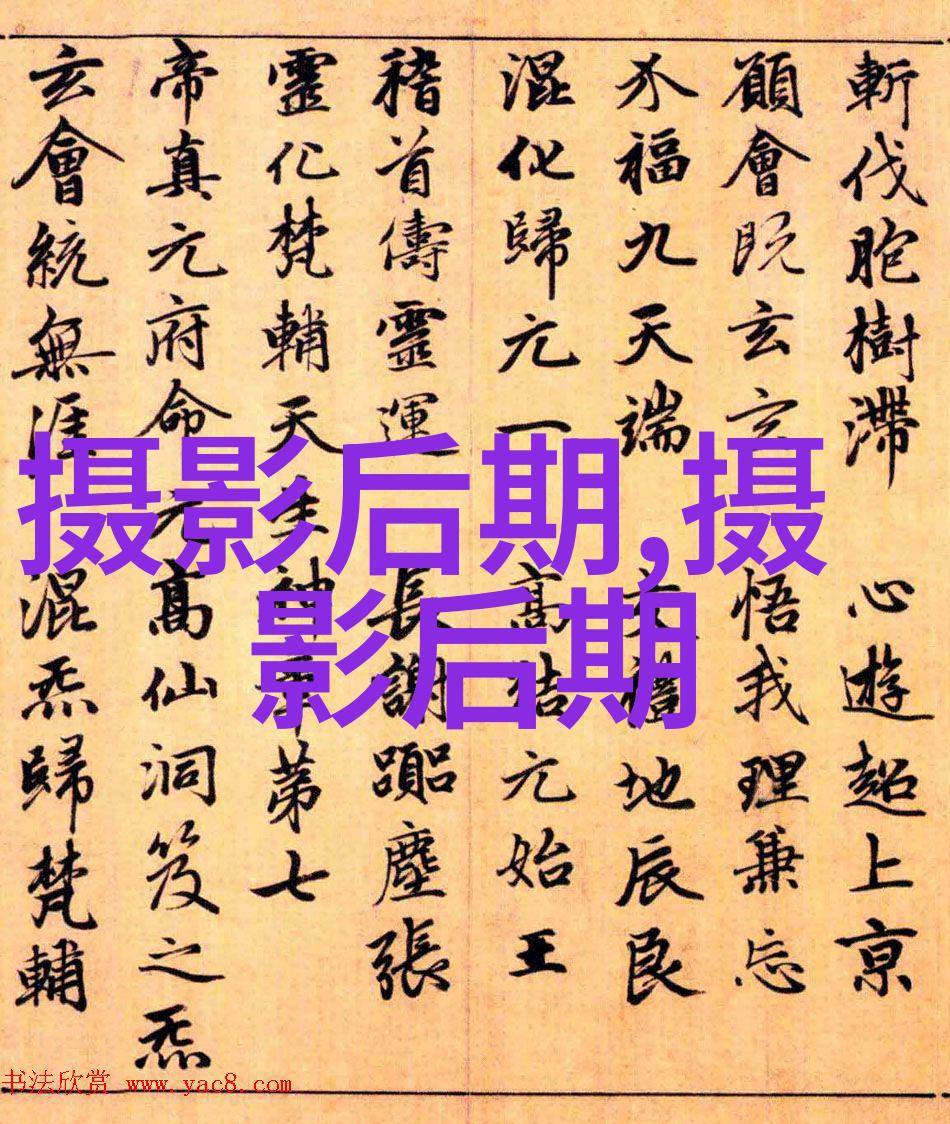 斬伐胞樹滯 心遊超上京
願會既玄玄 悟我理兼忘
福九天端 地辰良
混化歸元一 高結元始王
稽首儔靈運 長謝躐塵張
靈化梵輔天生神章第七
帝真元府命元高仙洞笈之炁
玄會統無涯 混炁歸梵輔
摄影后期,摄
影后期
书法欣赏 www.yac8.com